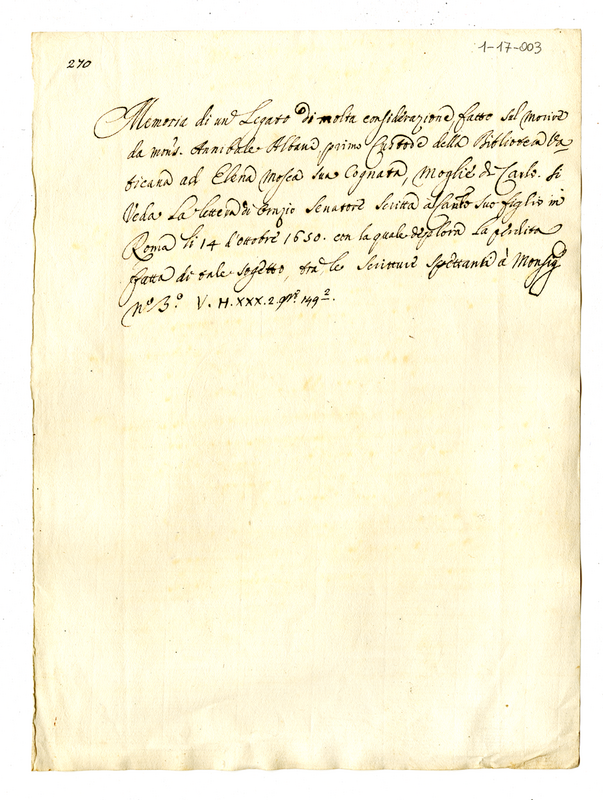 1-17-003
270
Memoria di un Legato di molta considerazione fatto sul morire
da mons. Annibale Albani primo Custode della Biblioteca Va
ticana ad Elena Mosca sua Cognata, Moglie di Carlo. Si
Veda La lettera di Orazio Senatore Scritta a Carlo suo figlio in
Roma li 14 d'ottobre 1650. con la quale deplora La perdita
fatta di tale sogetto, tra le Scritture Spettanti à Monsig
n.º 3.º V. H. XXX. 2. 149 2.